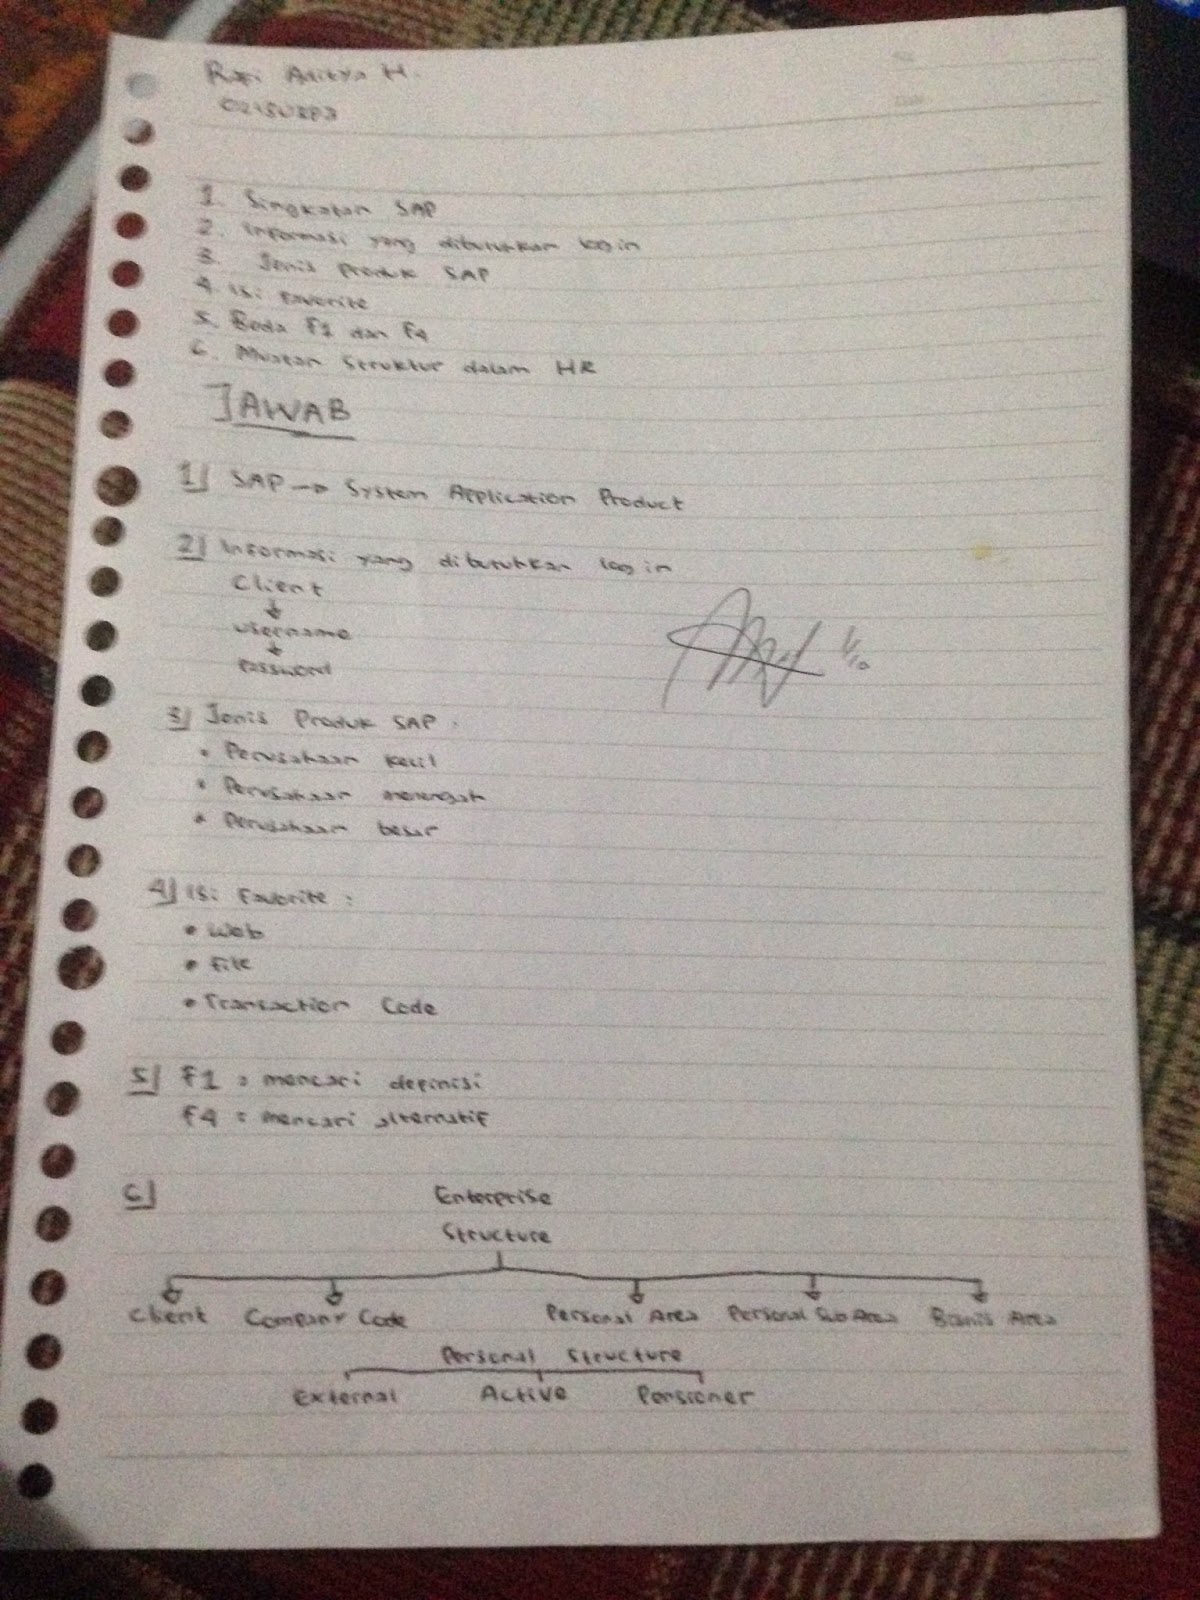 Rafi Aditya H.
1. Singkatan SAP
2. Informasi yang dibutuhkan login
3. Jenis Produk SAP
4. Isi Favorite
5. Beda F1 dan F4
6. Muatan Struktur dalam HR
JAWAB
1] SAP → System Application Product
2] Informasi yang dibutuhkan login
Client
↓
username
↓
Password
3] Jenis Produk SAP :
• Perusahaan kecil
• Perusahaan menengah
• Perusahaan besar
4] Isi Favorite :
• Web
• File
• Transaction Code
5] F1 = mencari definisi
F4 = mencari alternatif
6] Enterprise
Structure
Client Company Code Personal Area Personal Sub Area Bisnis Area
Personal Structure
External Active Pensioner